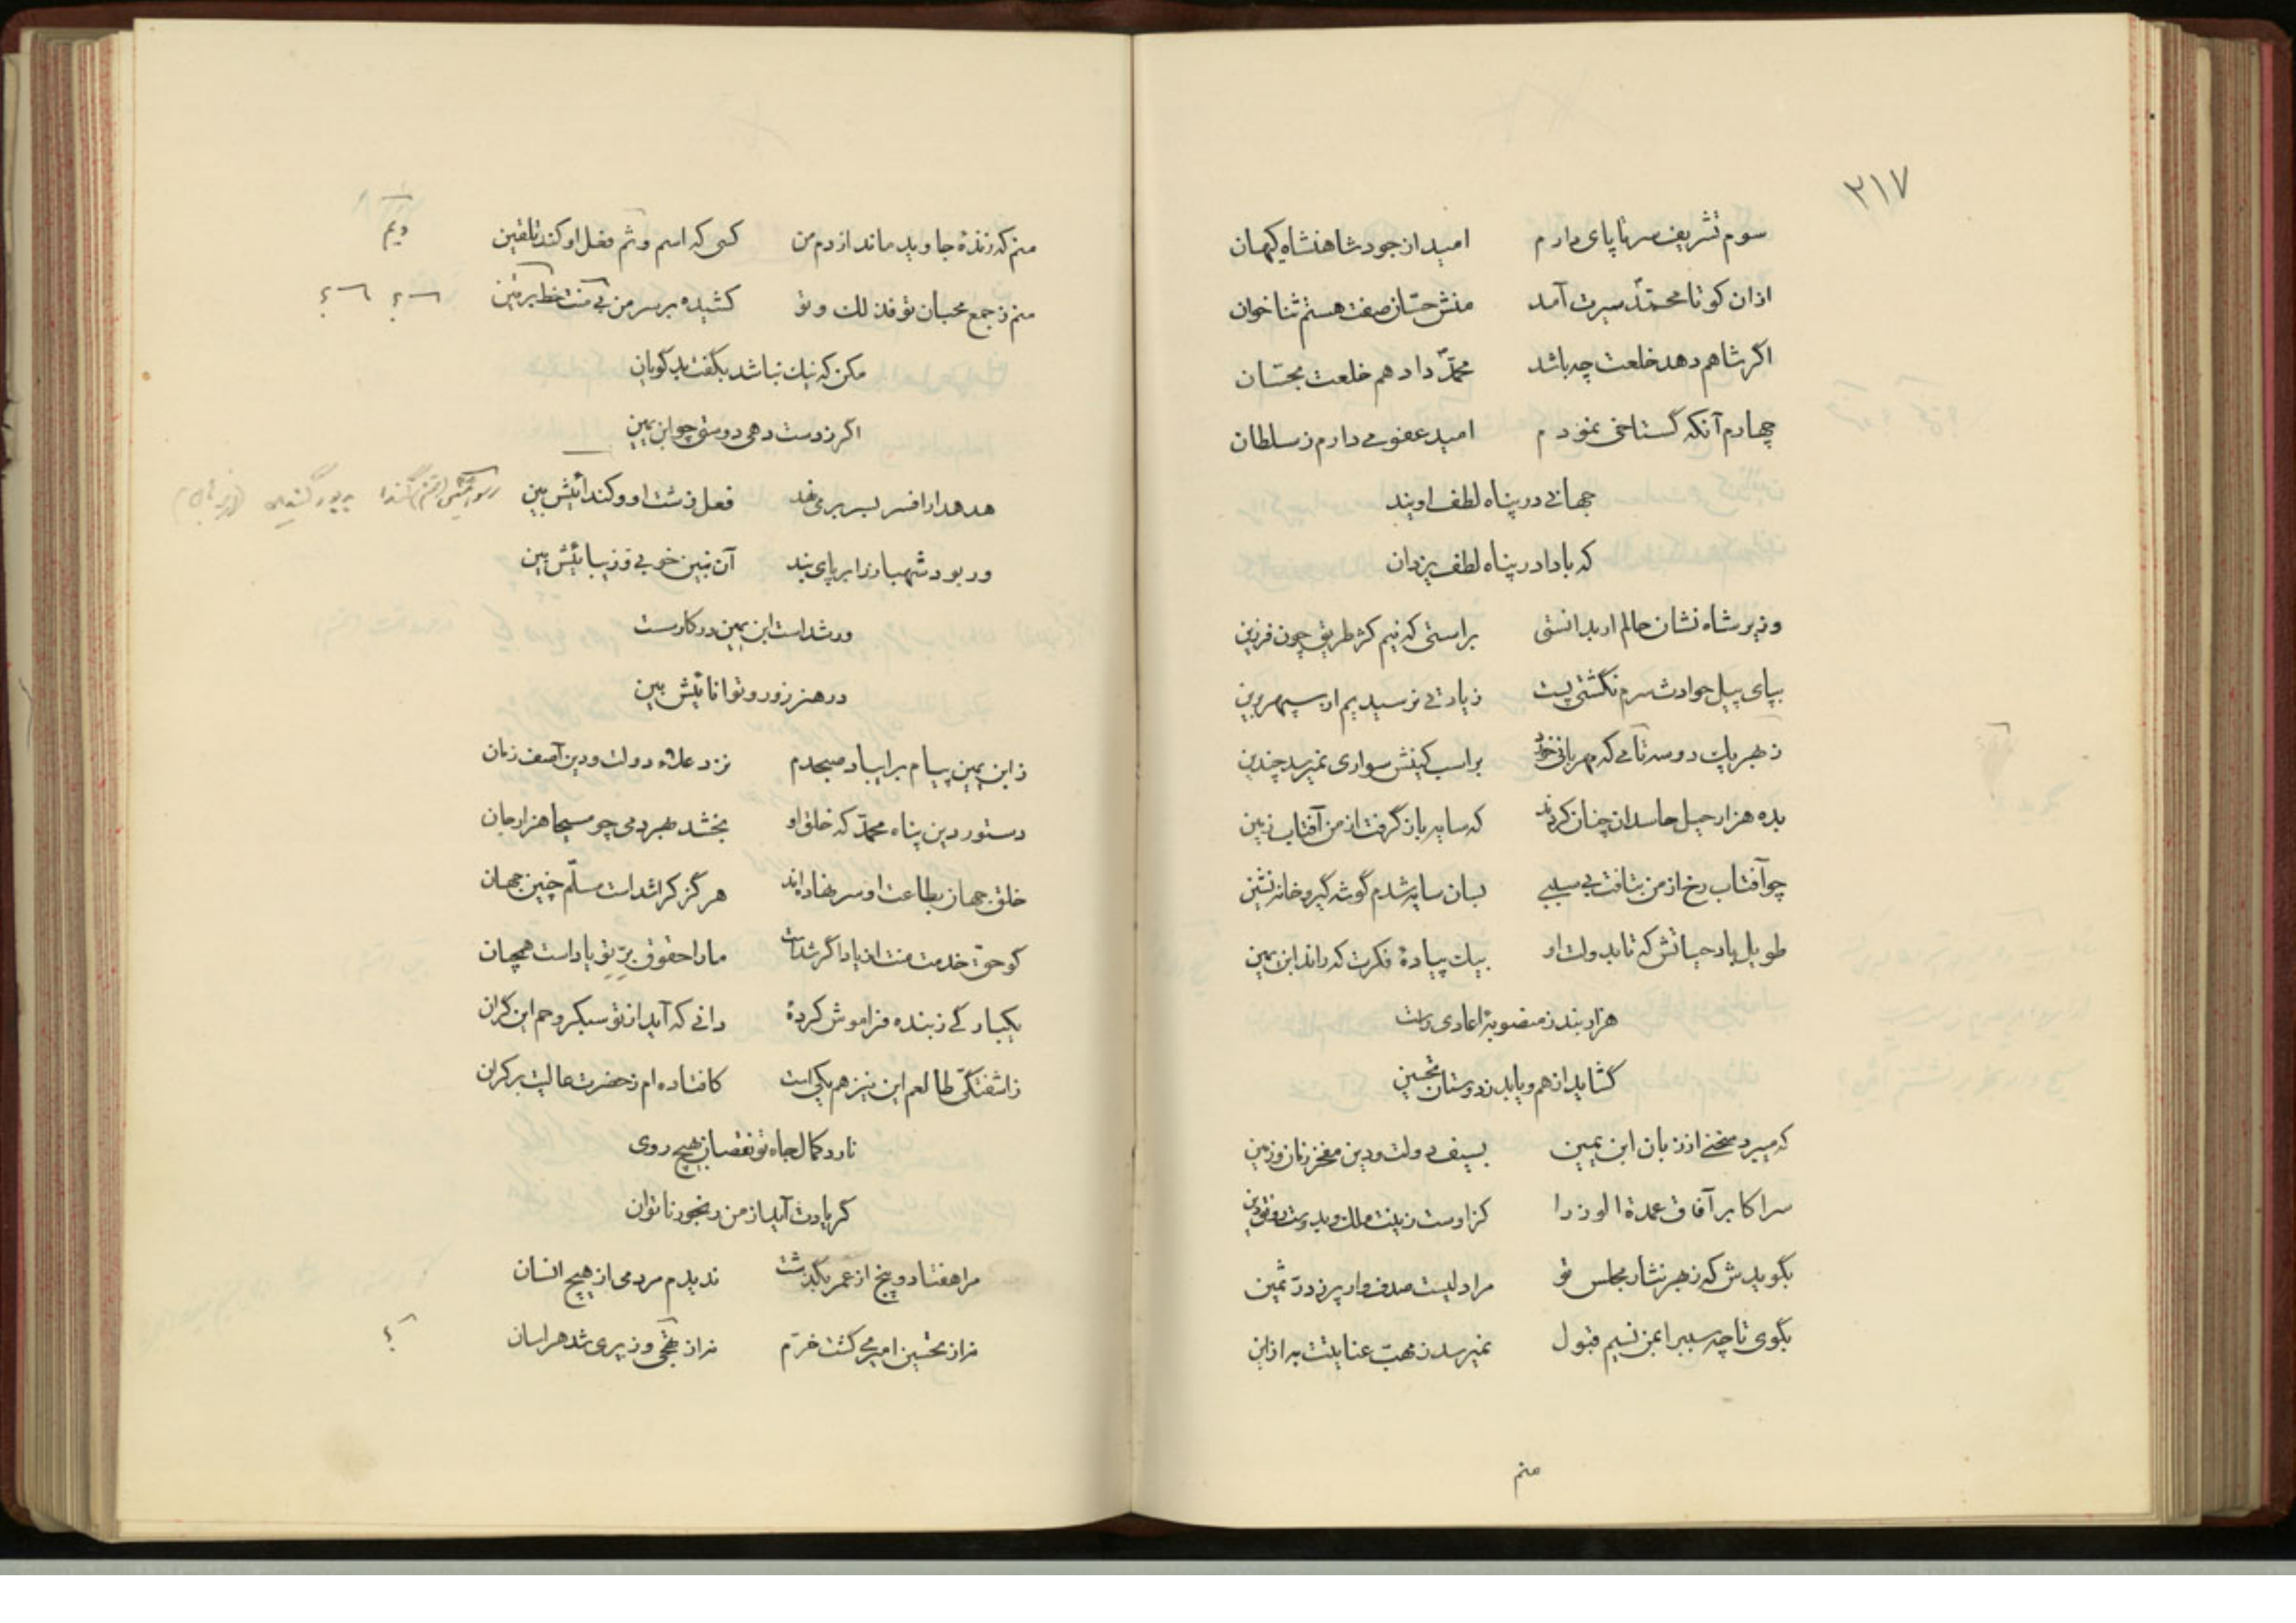 ۲۱۷
سوم تشریف سر تا پای دارم امید از جود شاهنشاه کیهان
ازان کو تا محمّد سیرت آمد منش حسّان صفت هستم ثنا خوان
اگر شاهم دهد خلعت چه باشد محمّد داد هم خلعت بحسّان
چهارم آنکه گستاخی نمودم امید عفو می دارم ز سلطان
جهانی در پناه لطف اویند
که بادا در پناه لطف یزدان
وزیر شاه نشان حالم ار بدانستی براستی که نیم کژ طریق چون فرزین
بپای پیل حوادث سرم نگشتی پست زیادتی نرسیدیم از سپهر برین
ز بهر یک دو سه تا می که مهربانی خود بر اسب کینش سواری نمیرسد چندین
بده هزار حیل حاسدان چنان کردند که سایه باز گرفت از من آفتاب زمین
چو آفتاب رخ از من بتافت بی سببی بسان سایه شدم گوشه گیر و خانه نشین
طویل باد حیاتش که تا بدولت او بیک پیادهٔ فکرت که داند ابن یمین
هزار بند ز منصوبهٔ اعادی رست
گشاید از هم و یابد ز دوستان تحسین
که میبرد سخنی از زبان ابن یمین بسیف دولت و دین مفخر زمان و زمین
سر اکابر آفاق عمدة الوزرا کزاوست زینت ملک و بدوست رونق دین
بگویدش که ز بهر نثار مجلس تو مرا دلیست صدف وار پر ز درّ ثمین
بگوی تا چه سبب را بمن نسیم قبول نمیرسد ز مهبّ عنایتت به ازین
منم
منم که زندهٔ جاوید ماند از دم من کسی که اسم و ثم فعل او کند تلقین
منم ز جمع محبان تو فذلک و تو کشیده بر سر من بی منت خط ترقین
مکن که نیک نباشد بگفت بد گویان
اگر ز دست دهی دوستی چو ابن یمین
هدهد ار افسر بسر بر می نهد فعل زشت او و کندائیش بین
ور بود شهباز را بر پای بند آن نبین خوبی و زیبائیش بین
ور شد است ابن یمین در کار سست
در هنر زور و توانائیش بین
ز ابن یمین پیام بر ای باد صبحدم نزد علاء دولت و دین آصف زمان
دستور دین پناه محمّد که خلق او بخشد بهر دمی چو مسیحا هزار جان
خلق جهان بطاعت او سر نهاده اند هرگز کرا شد است مسلّم چنین جهان
کو حق خدمت منت از یاد اگر شداست ما را حقوق برّ تو یاد است همچنان
یکبارگی ز بنده فراموش کردهٔ دانی که آید از تو سبکروحم این گران
ز اشفتگی طالعم این نیز هم یکی است کافتاده ام ز حضرت عالیت بر کران
نارد کمال جاه تو نقصان بهیچ روی
گر یادت آید از من رنجور ناتوان
مرا هفتاد و پنج از عمر بگذشت ندیدم مردمی از هیچ انسان
نه از تحسین امیری گشت خرّم نه از هجی وزیری شد هراسان